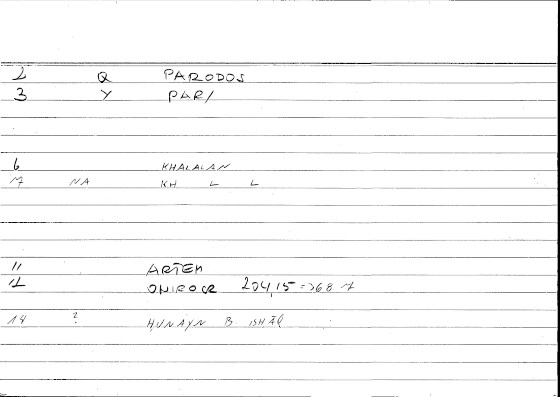 2 Q PARODOS
3 Y PAR/
6 KHALALAN
7 NA KH L L
11 ARTEM
12 ONIROCR 204,15 = 368
14 ? HUNAYN B ISHĀQ